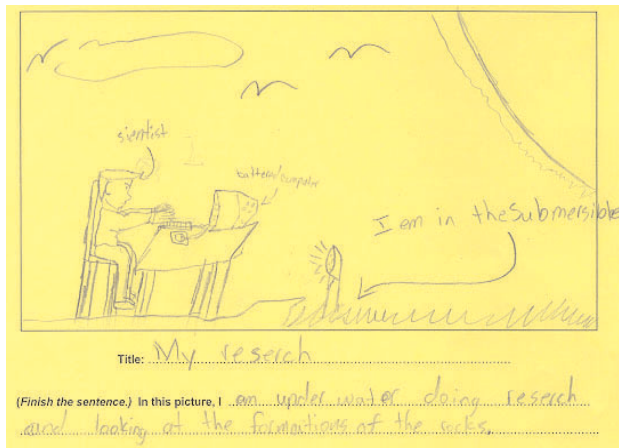 sientist
battery/computer
I am in the Submersible
Title: My reserch
(Finish the sentence.) In this picture, I am under water doing reserch
and looking at the formations of the rocks.